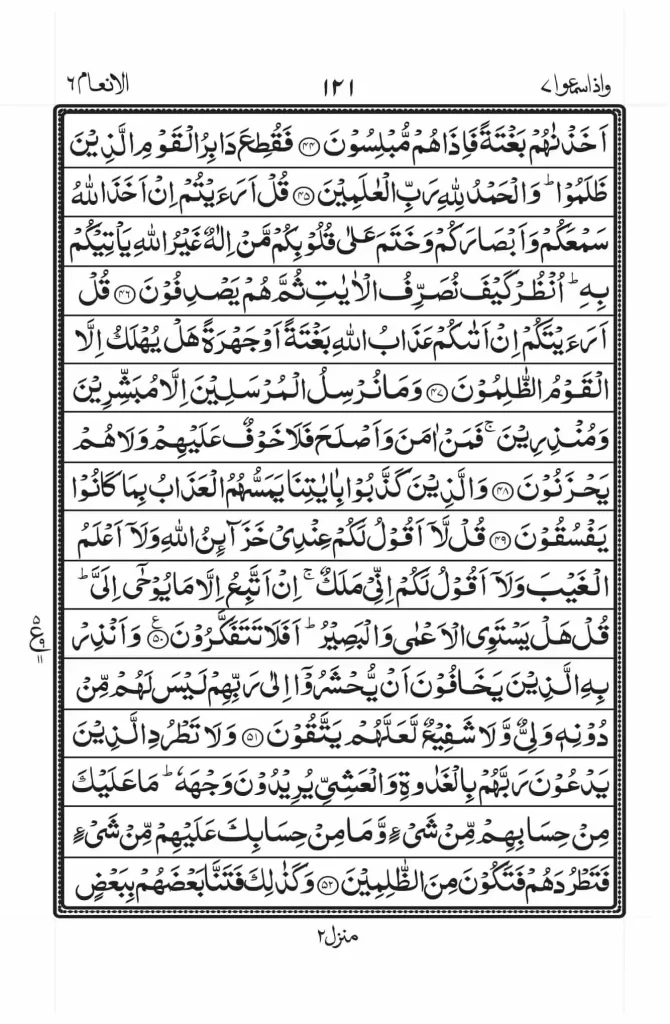 واذاسمعوا ٧ ١٢١ الانعام ٦
اَخَذۡنٰهُمۡ بَغۡتَةً فَاِذَا هُمۡ مُّبۡلِسُوۡنَ ﴿۴۴﴾ فَقُطِعَ دَابِرُ الۡقَوۡمِ الَّذِيۡنَ
ظَلَمُوۡا ؕ وَالۡحَمۡدُ لِلّٰهِ رَبِّ الۡعٰلَمِيۡنَ ﴿۴۵﴾ قُلۡ اَرَءَيۡتُمۡ اِنۡ اَخَذَ اللّٰهُ
سَمۡعَكُمۡ وَاَبۡصَارَكُمۡ وَخَتَمَ عَلٰى قُلُوۡبِكُمۡ مَّنۡ اِلٰهٌ غَيۡرُ اللّٰهِ يَاۡتِيۡكُمۡ
بِهِ ؕ اُنْظُرۡ كَيۡفَ نُصَرِّفُ الۡاٰيٰتِ ثُمَّ هُمۡ يَصۡدِفُوۡنَ ﴿۴۶﴾ قُلۡ
اَرَءَيۡتَكُمۡ اِنۡ اَتٰٮكُمۡ عَذَابُ اللّٰهِ بَغۡتَةً اَوۡ جَهۡرَةً هَلۡ يُهۡلَكُ اِلَّا
الۡقَوۡمُ الظّٰلِمُوۡنَ ﴿۴۷﴾ وَمَا نُرۡسِلُ الۡمُرۡسَلِيۡنَ اِلَّا مُبَشِّرِيۡنَ
وَمُنۡذِرِيۡنَ ۚ فَمَنۡ اٰمَنَ وَاَصۡلَحَ فَلَا خَوۡفٌ عَلَيۡهِمۡ وَلَا هُمۡ
يَحۡزَنُوۡنَ ﴿۴۸﴾ وَالَّذِيۡنَ كَذَّبُوۡا بِاٰيٰتِنَا يَمَسُّهُمُ الۡعَذَابُ بِمَا كَانُوۡا
يَفۡسُقُوۡنَ ﴿۴۹﴾ قُلْ لَّاۤ اَقُوۡلُ لَكُمۡ عِنۡدِىۡ خَزَآٮِٕنُ اللّٰهِ وَلَاۤ اَعۡلَمُ
الۡغَيۡبَ وَلَاۤ اَقُوۡلُ لَكُمۡ اِنِّىۡ مَلَكٌ ۚ اِنۡ اَتَّبِعُ اِلَّا مَا يُوۡحٰٓى اِلَىَّ ؕ
قُلۡ هَلۡ يَسۡتَوِى الۡاَعۡمٰى وَالۡبَصِيۡرُ ؕ اَفَلَا تَتَفَكَّرُوۡنَ ﴿۵۰﴾ ع وَاَنۡذِرۡ
بِهِ الَّذِيۡنَ يَخَافُوۡنَ اَنۡ يُّحۡشَرُوۡۤا اِلٰى رَبِّهِمۡ لَيۡسَ لَهُمۡ مِّنۡ
دُوۡنِهٖ وَلِىٌّ وَّلَا شَفِيۡعٌ لَّعَلَّهُمۡ يَتَّقُوۡنَ ﴿۵۱﴾ وَلَا تَطۡرُدِ الَّذِيۡنَ
يَدۡعُوۡنَ رَبَّهُمۡ بِالۡغَدٰوةِ وَالۡعَشِىِّ يُرِيۡدُوۡنَ وَجۡهَهٗ ؕ مَا عَلَيۡكَ
مِنۡ حِسَابِهِمۡ مِّنۡ شَىۡءٍ وَّمَا مِنۡ حِسَابِكَ عَلَيۡهِمۡ مِّنۡ شَىۡءٍ
فَتَطۡرُدَهُمۡ فَتَكُوۡنَ مِنَ الظّٰلِمِيۡنَ ﴿۵۲﴾ وَكَذٰلِكَ فَتَنَّا بَعۡضَهُمۡ بِبَعۡضٍ
منزل ٢